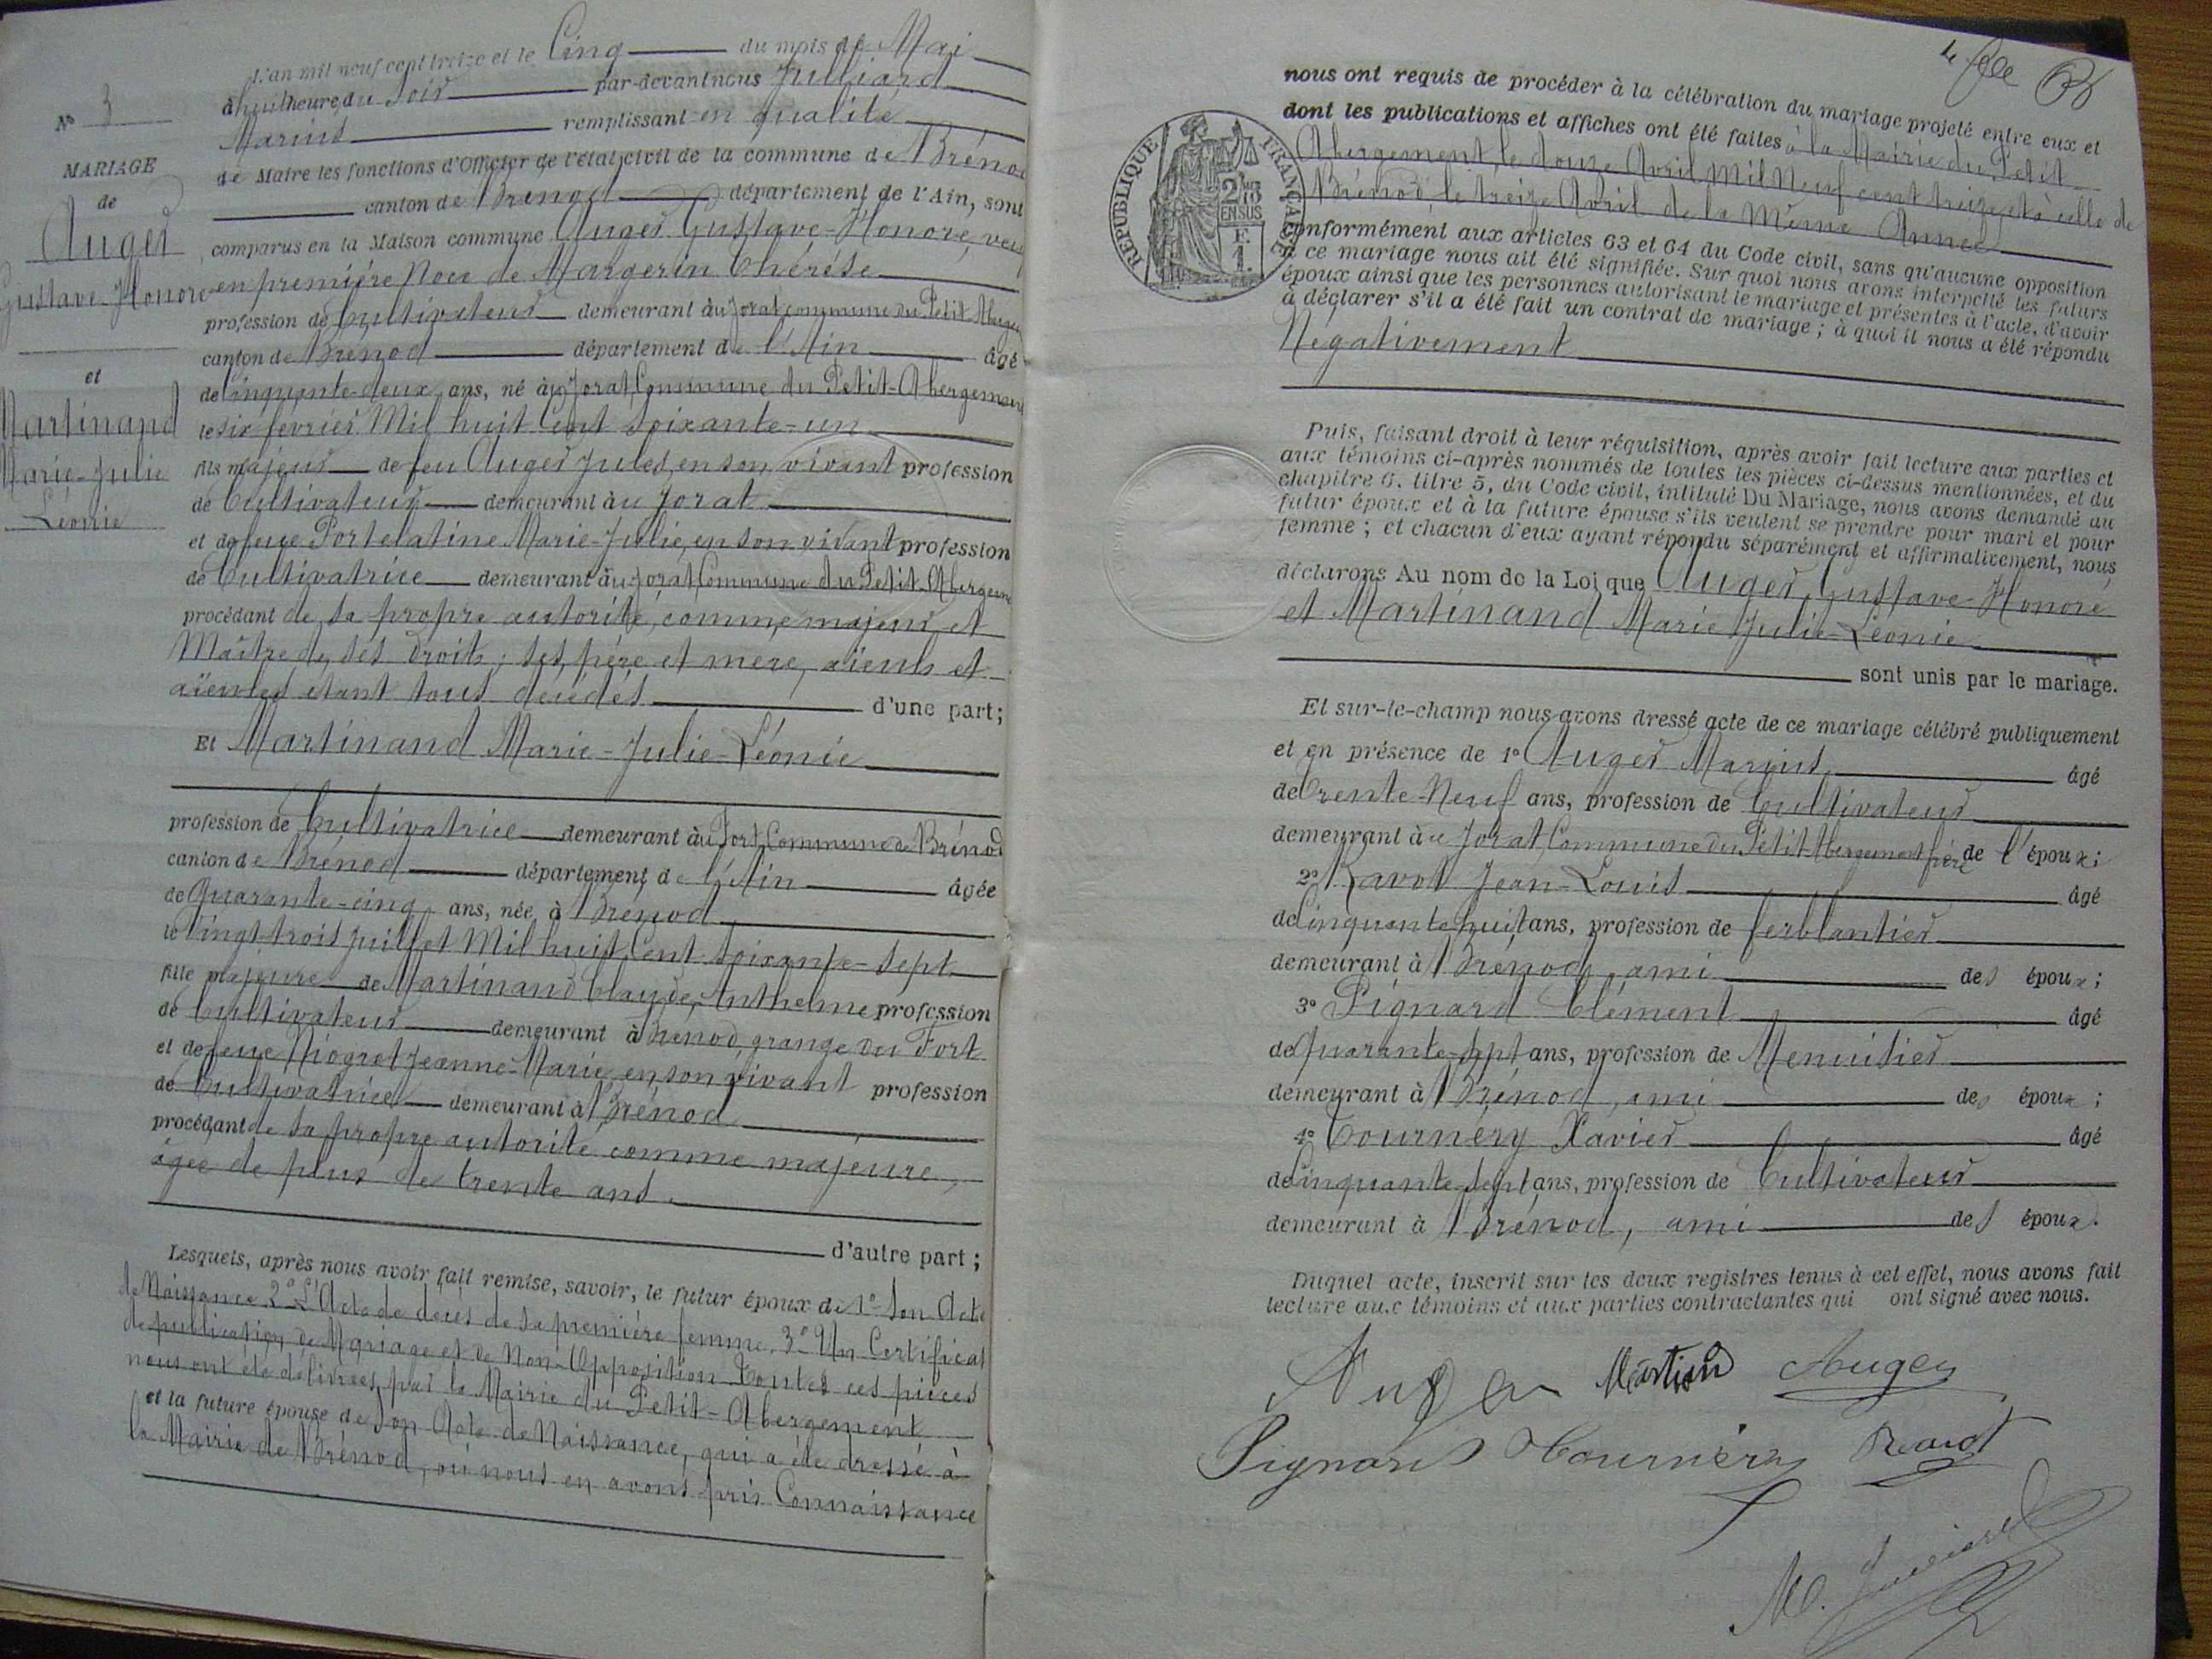 L'an mil neuf cent treize et le Cinq du mois de Mai
à huit heure du Soir par-devant nous Julliard
Marius remplissant en qualité
de Maire les fonctions d'Officier de l'état civil de la commune de Brénod
canton de Brénod département de l'Ain, sont
comparus en la Maison commune Auger Gustave-Honoré, veuf
en première Noce de Margerin Thérèse
profession de Cultivateur demeurant àu Jorat commune du Petit Aberge
canton de Brénod département de l'Ain âgé
de Cinquante-deux ans, né àu Jorat Commune du Petit-Abergement
le six février Mil huit Cent Soixante-un
fils majeur de feu Auger Jules, en son vivant profession
de Cultivateur demeurant àu Jorat
et de feue Portelatine Marie-Julie, en son vivant profession
de Cultivatrice demeurant àu Jorat Commune du Petit-Abergem
procédant de sa propre autorité, comme majeur et
Maître de ses droits; ses père et mère, aïeuls et
aïeules étant tous décédés d'une part;
Et Martinand Marie-Julie-Léonie
profession de Cultivatrice demeurant àu Fort Commune de Brénod
canton de Brénod département de l'Ain âgée
de Quarante-cinq ans, née à Brénod
le Vingt-trois Juillet Mil huit Cent Soixante-Sept
fille majeure de Martinand Claude-Anthelme profession
de Cultivateur demeurant à Brénod, grange du Fort
et de feue Niogret Jeanne-Marie, en son vivant profession
de Cultivatrice demeurant à Brénod
procédant de sa propre autorité comme majeure,
âgée de plus de trente ans.
d'autre part;
Lesquels, après nous avoir fait remise, savoir, le futur époux de 1° Son Acte
de Naissance 2° L'Acte de décès de sa première femme. 3° Un Certificat
de publication de Mariage et de Non-Opposition Toutes ces pièces
nous ont été délivrées par la Mairie du Petit-Abergement
et la future épouse de son Acte de Naissance, qui a été dressé à
la Mairie de Brénod, où nous en avons pris Connaissance
N° 3
MARIAGE
de
Auger
Gustave-Honoré
et
Martinand
Marie-Julie
Léonie
nous ont requis de procéder à la célébration du mariage projeté entre eux et
dont les publications et affiches ont été faites à la Mairie du Petit
Abergement, le douze Avril Mil Neuf cent treize et à celle de
Brénod le treize Avril de la Même Année
conformément aux articles 63 et 64 du Code civil, sans qu'aucune opposition
à ce mariage nous ait été signifiée. Sur quoi nous avons interpellé les futurs
époux ainsi que les personnes autorisant le mariage et présentes à l'acte, d'avoir
à déclarer s'il a été fait un contrat de mariage; à quoi il nous a été répondu
Négativement
Puis, faisant droit à leur réquisition, après avoir fait lecture aux parties et
aux témoins ci-après nommés de toutes les pièces ci-dessus mentionnées, et du
chapitre 6, titre 5, du Code civil, intitulé Du Mariage, nous avons demandé au
futur époux et à la future épouse s'ils veulent se prendre pour mari et pour
femme; et chacun d'eux ayant répondu séparément et affirmativement, nous
déclarons Au nom de la Loi que Auger Gustave-Honoré
et Martinand Marie Julie-Léonie
sont unis par le mariage.
Et sur-le-champ nous avons dressé acte de ce mariage célébré publiquement
et en présence de 1° Auger Marius âgé
de Trente-Neuf ans, profession de Cultivateur
demeurant àu Jorat Commune du Petit Abergement frère de l'époux;
2° Ravot Jean-Louis âgé
de Cinquante huit ans, profession de ferblantier
demeurant à Brénod, ami des époux;
3° Pignard Clément âgé
de Quarante-Sept ans, profession de Menuisier
demeurant à Brénod, ami des époux;
4° Tournéry Xavier âgé
de Cinquante-Sept ans, profession de Cultivateur
demeurant à Brénod, ami des époux.
Duquel acte, inscrit sur les deux registres tenus à cet effet, nous avons fait
lecture aux témoins et aux parties contractantes qui ont signé avec nous.
Auger Martinand Auger
Pignard Tournéry Ravot
M. Julliard
REPUBLIQUE FRANÇAISE
2/10
EN SUS
F.
1.